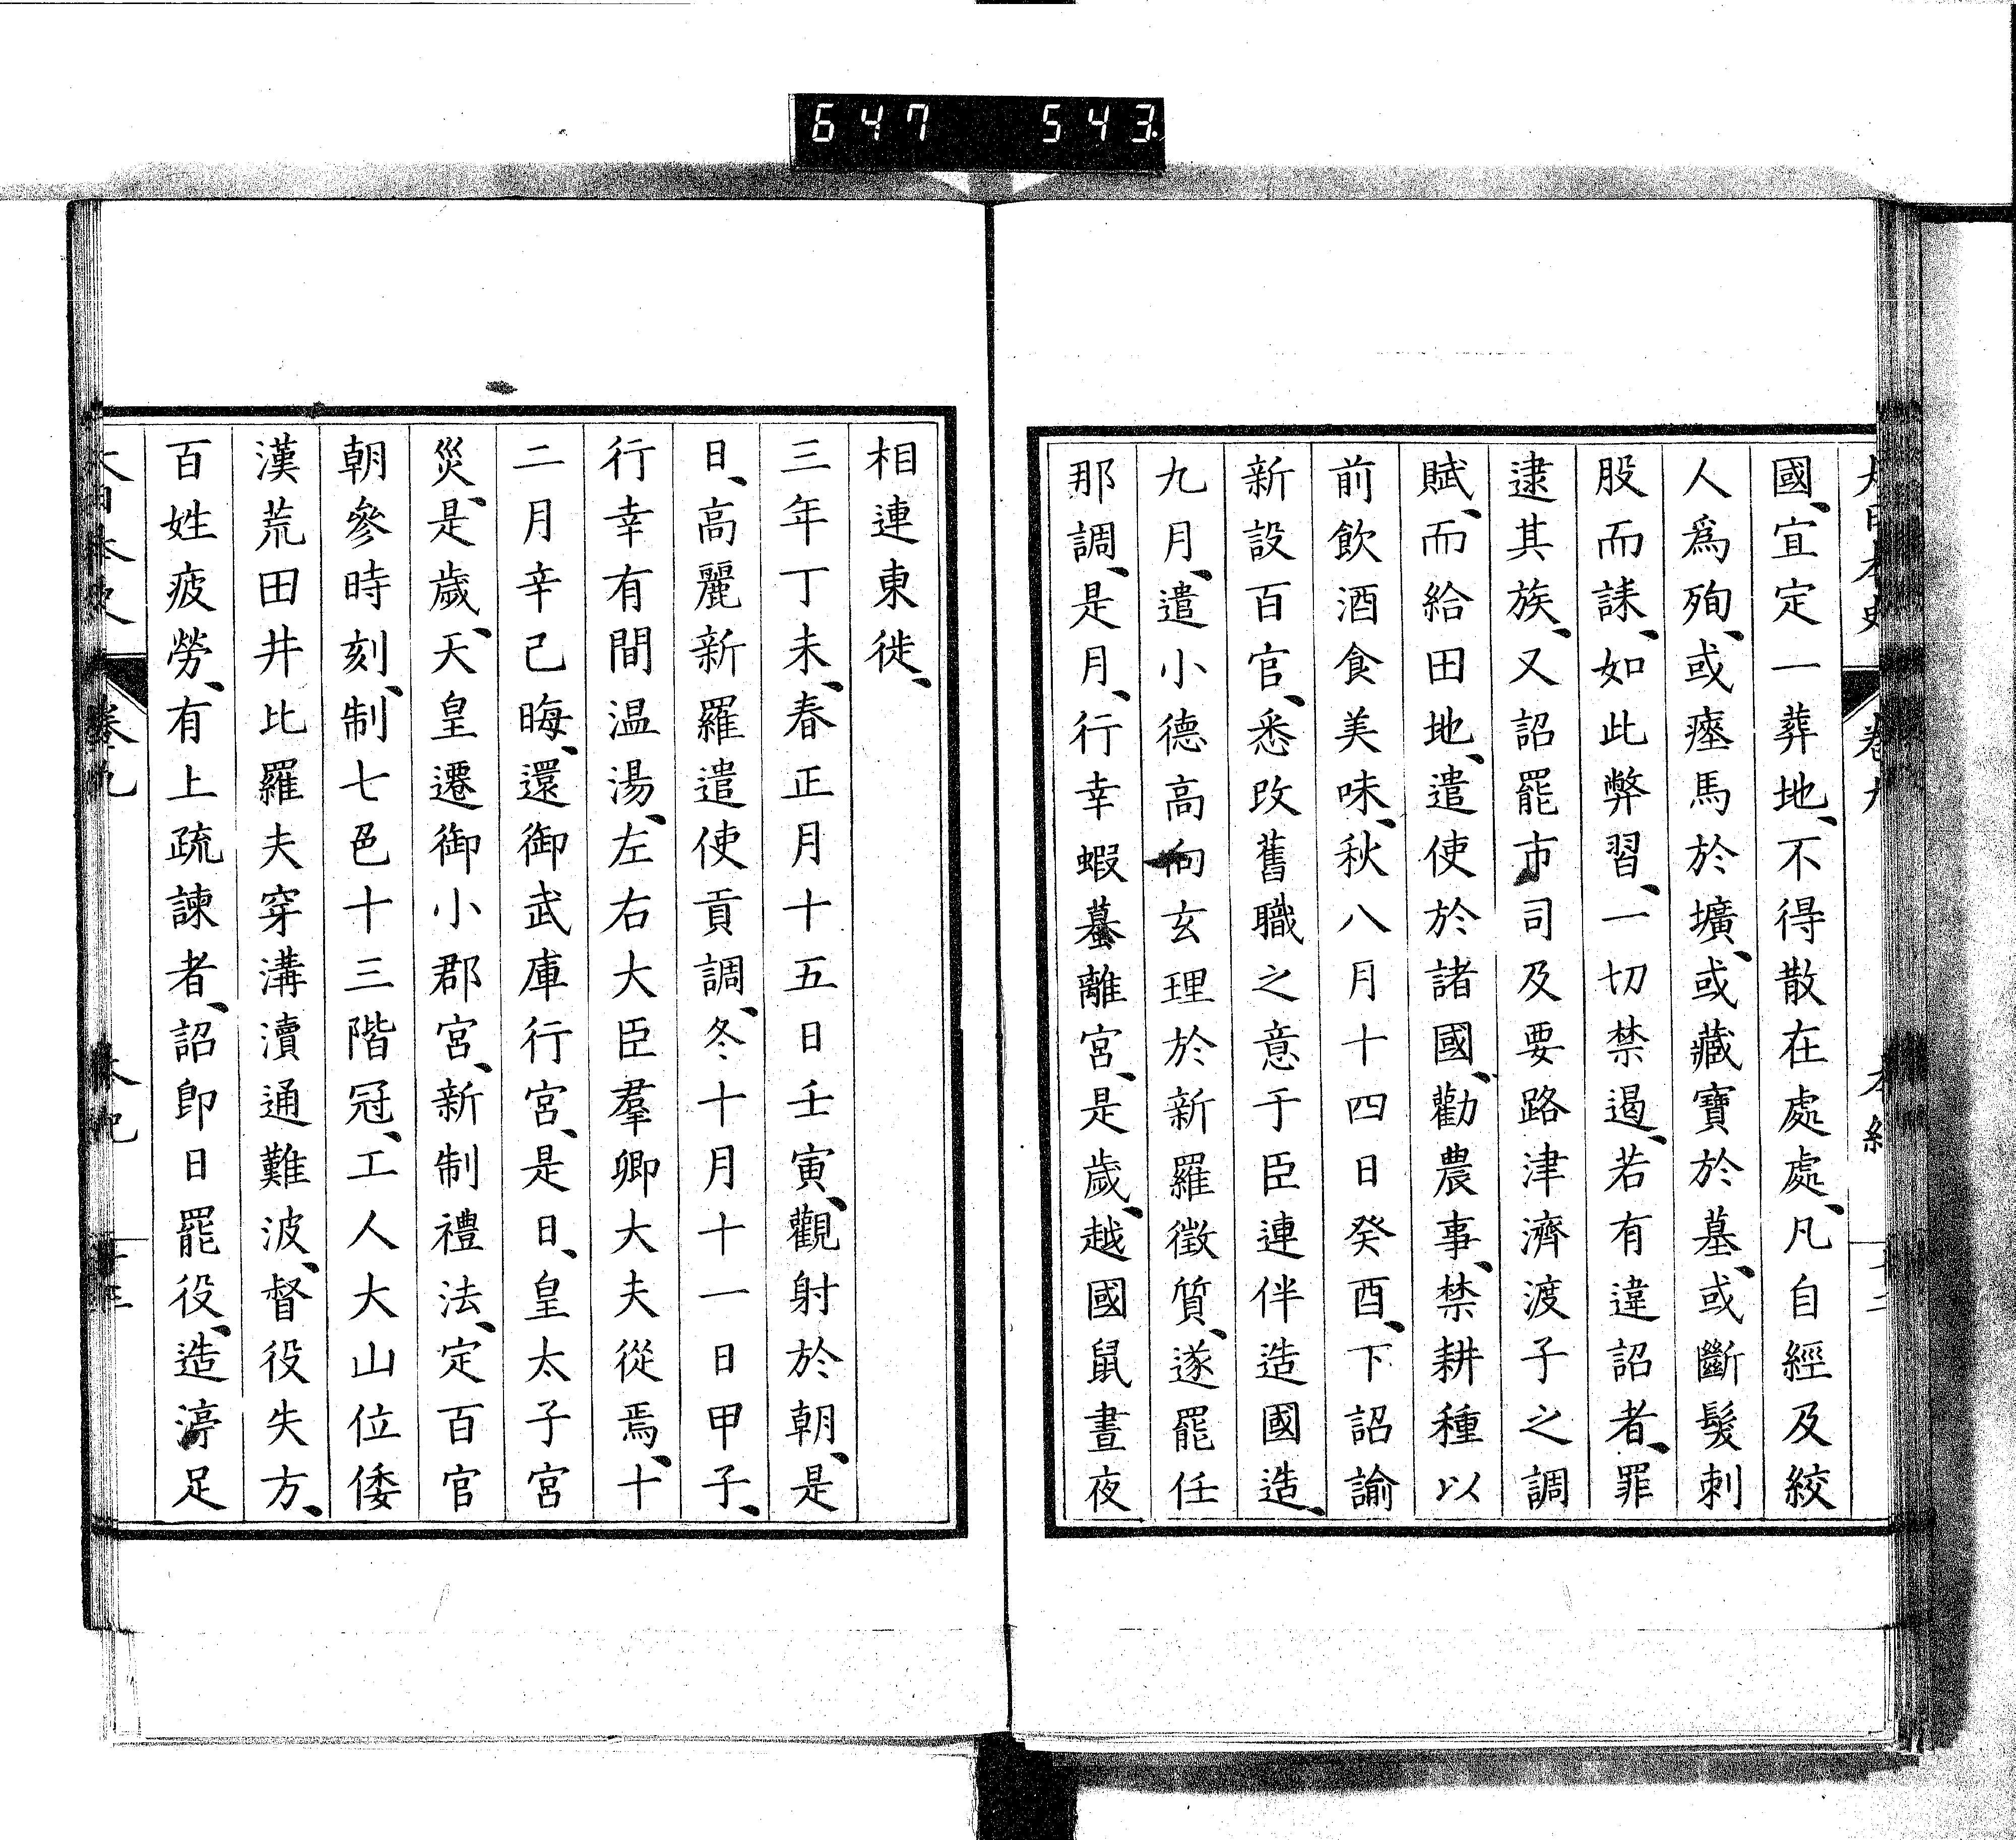 647 543
大日本史 卷九 本紀 十二
國、宜定一葬地、不得散在處處、凡自經及絞
人爲殉、或瘞馬於壙、或藏寶於墓、或斷髮刺
股而誄、如此弊習、一切禁遏、若有違詔者、罪
逮其族、又詔罷市司及要路津濟渡子之調
賦、而給田地、遣使於諸國、勸農事、禁耕種以
前飲酒食美味、秋八月十四日癸酉、下詔諭
新設百官、悉改舊職之意于臣連伴造國造、
九月、遣小德高向玄理於新羅徵質、遂罷任
那調、是月、行幸蝦蟇離宮、是歲、越國鼠晝夜
相連東徙、
三年丁未、春正月十五日壬寅、觀射於朝、是
日、高麗新羅遣使貢調、冬十月十一日甲子、
行幸有間温湯、左右大臣羣卿大夫從焉、十
二月辛己晦、還御武庫行宮、是日、皇太子宮
災、是歲、天皇遷御小郡宮、新制禮法、定百官
朝參時刻、制七色十三階冠、工人大山位倭
漢荒田井比羅夫穿溝瀆通難波、督役失方、
百姓疲勞、有上疏諫者、詔卽日罷役、造渟足
大日本史 卷九 本紀 十三